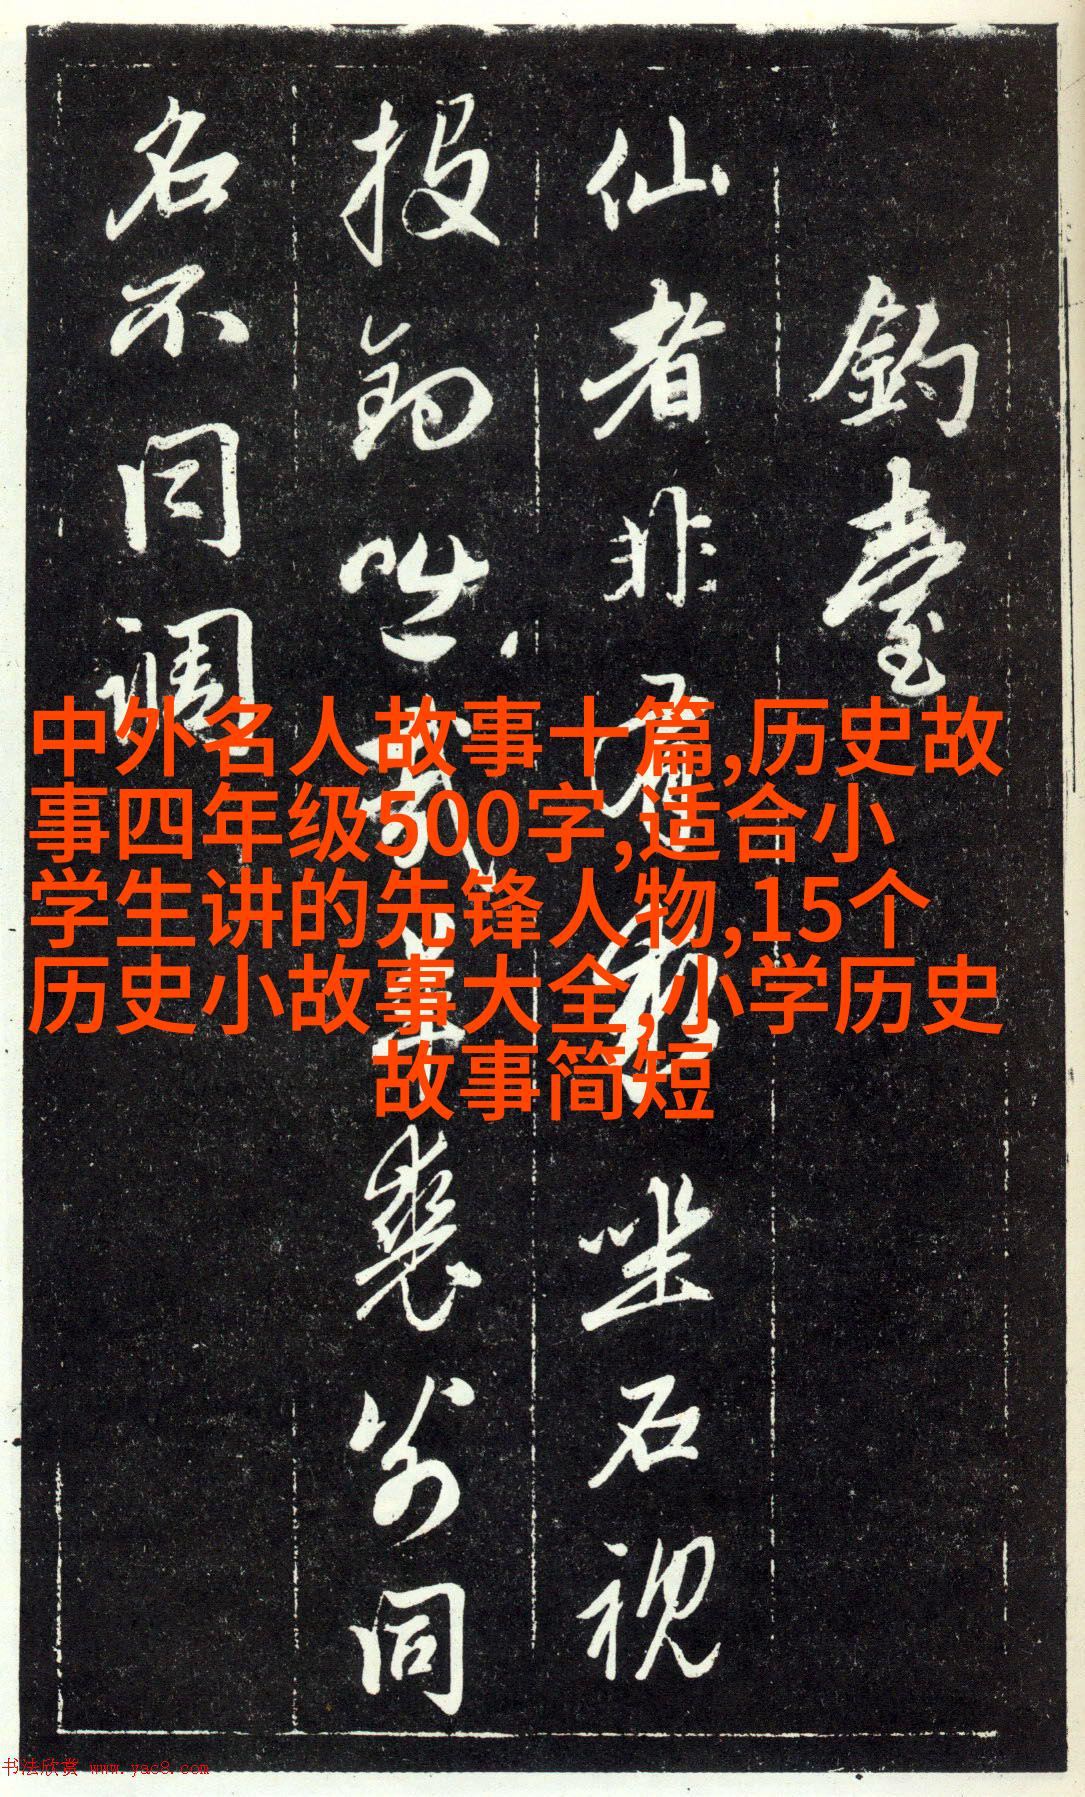 釣臺
仙者非有靈坐石視
投釣咄哉
羨為同
名不同調
中外名人故事十篇,历史故
事四年级500字,适合小
学生讲的先锋人物,15个
历史小故事大全,小学历史
故事简短
书法欣赏 www.yac8.com